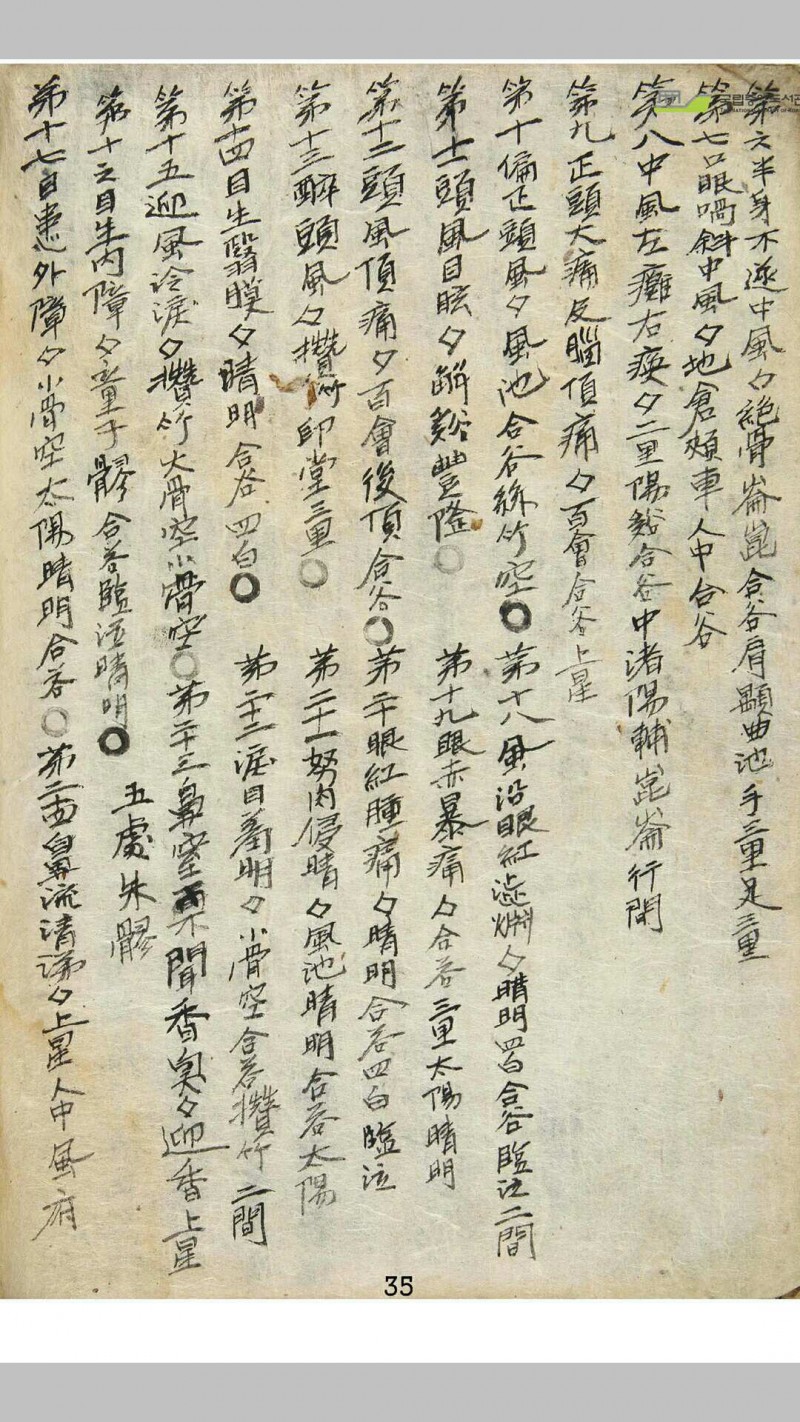 第六半身不遂中風夕絕骨崙崑合谷肩顒曲池手三里足三里
第七口眼喎斜中風夕地倉頰車人中合谷
第八中風左癱右瘓夕二里陽谿合谷中渚陽輔崑崙行間
第九正頭大痛及腦頂痛夕百會合谷上星
第十偏正頭風夕風池合谷絲竹空
第十八風沿眼紅澁爛夕睛明四白合谷臨泣二間
第十一頭風目眩夕解谿豊隆
第十九眼赤暴痛夕合谷三里太陽睛明
第十二頭風頂痛夕百會後頂合谷
第二十眼紅腫痛夕睛明合谷四白臨泣
第十三醉頭風夕攢竹印堂三里
第二十一努肉侵睛夕風池睛明合谷太陽
第十四目生翳膜夕睛明合谷四白
第二十二淚目羞明夕小骨空合谷攢竹二間
第十五迎風冷淚夕攢竹大骨空小骨空
第二十三鼻窒不聞香臭夕迎香上星
五處禾髎
第十六目生內障夕童子髎合谷臨泣睛明
第十七目患外障夕小骨空太陽睛明合谷
第二十四鼻流清涕夕上星人中風府
35